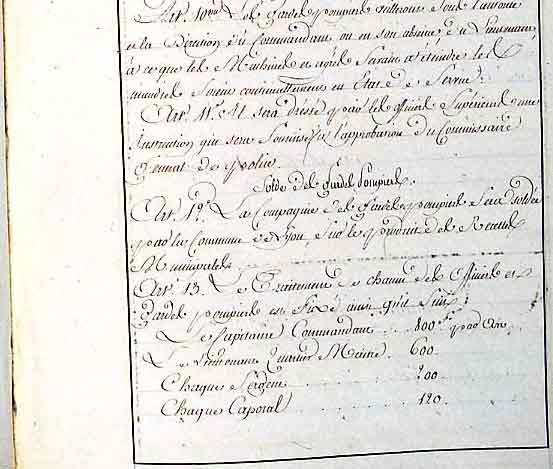 Art. 10me Les gardes pompiers veilleront sous l'autorité
et la Direction du Commandant ou en son absence du Lieutenant
à ce que les Machines et agrès servans à éteindre les
incendies soient continuellement en Etat de servir.
Art. 11e Il sera dressé par les officiers supérieurs une
Instruction qui sera soumise à l'approbation du Commissaire
Général de Police.
Solde des gardes Pompiers.
Art. 12. La Compagnie des Gardes pompiers sera soldée
par la Commune de Lyon, sur le produit des Recettes
Municipales
Art. 13. Le Traitement de chacun des Officiers et
Gardes pompiers est fixé ainsi qu'il suit :
Le Capitaine Commandant . . 800 fs par An .
Le Lieutenant Quartier Maitre . 600.
Chaque Sergent . . . . 200
Chaque Caporal . . . . 120